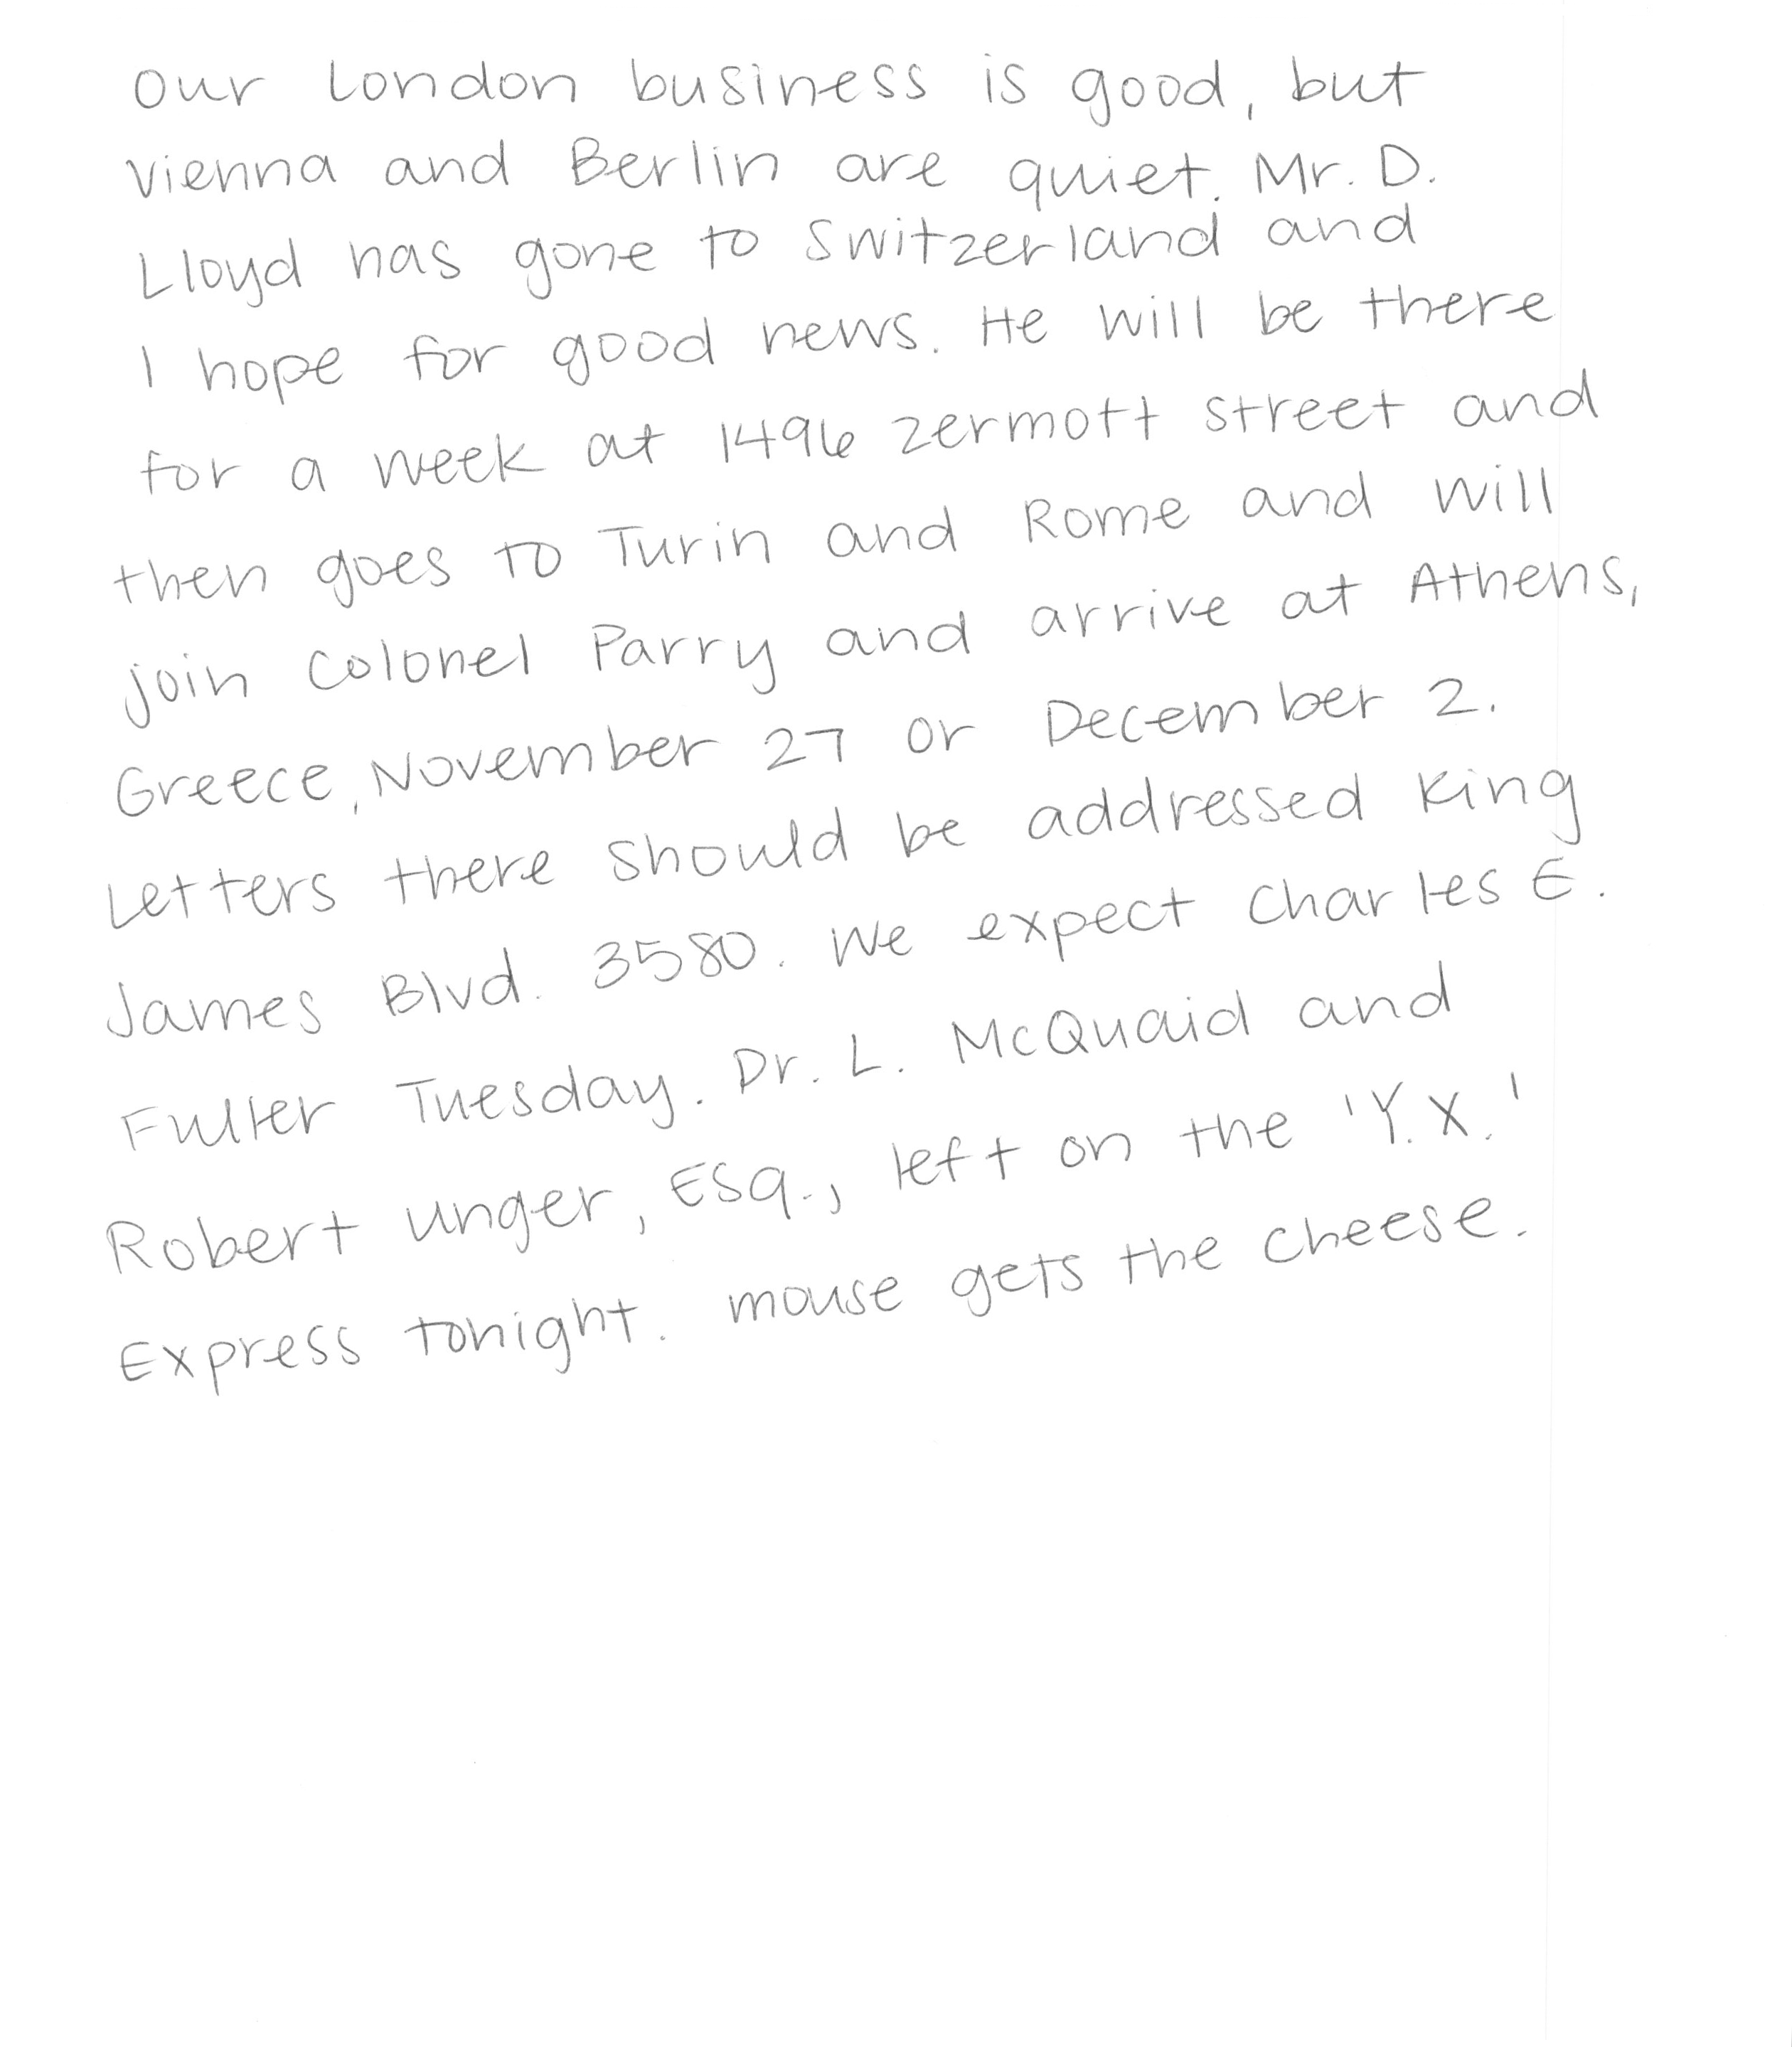 Our London business is good, but
Vienna and Berlin are quiet. Mr. D.
Lloyd has gone to Switzerland and
I hope for good news. He will be there
for a week at 1496 Zermott Street and
then goes to Turin and Rome and will
join Colonel Parry and arrive at Athens,
Greece, November 27 or December 2.
Letters there should be addressed King
James Blvd. 3580. We expect Charles E.
Fuller Tuesday. Dr. L. McQuaid and
Robert Unger, Esq., left on the 'Y.X.'
Express tonight. mouse gets the cheese.